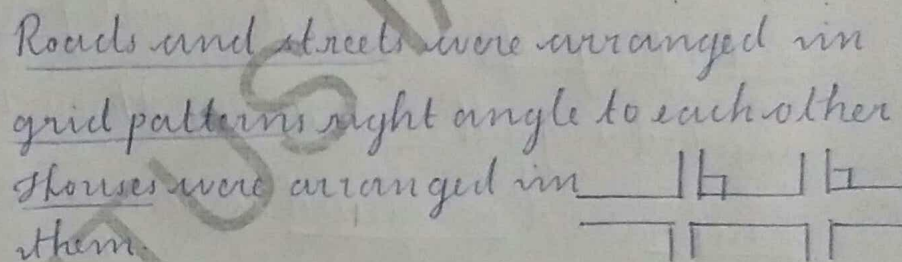 Roads and streets were arranged in
grid patterns right angle to each other
Houses were arranged in
them.